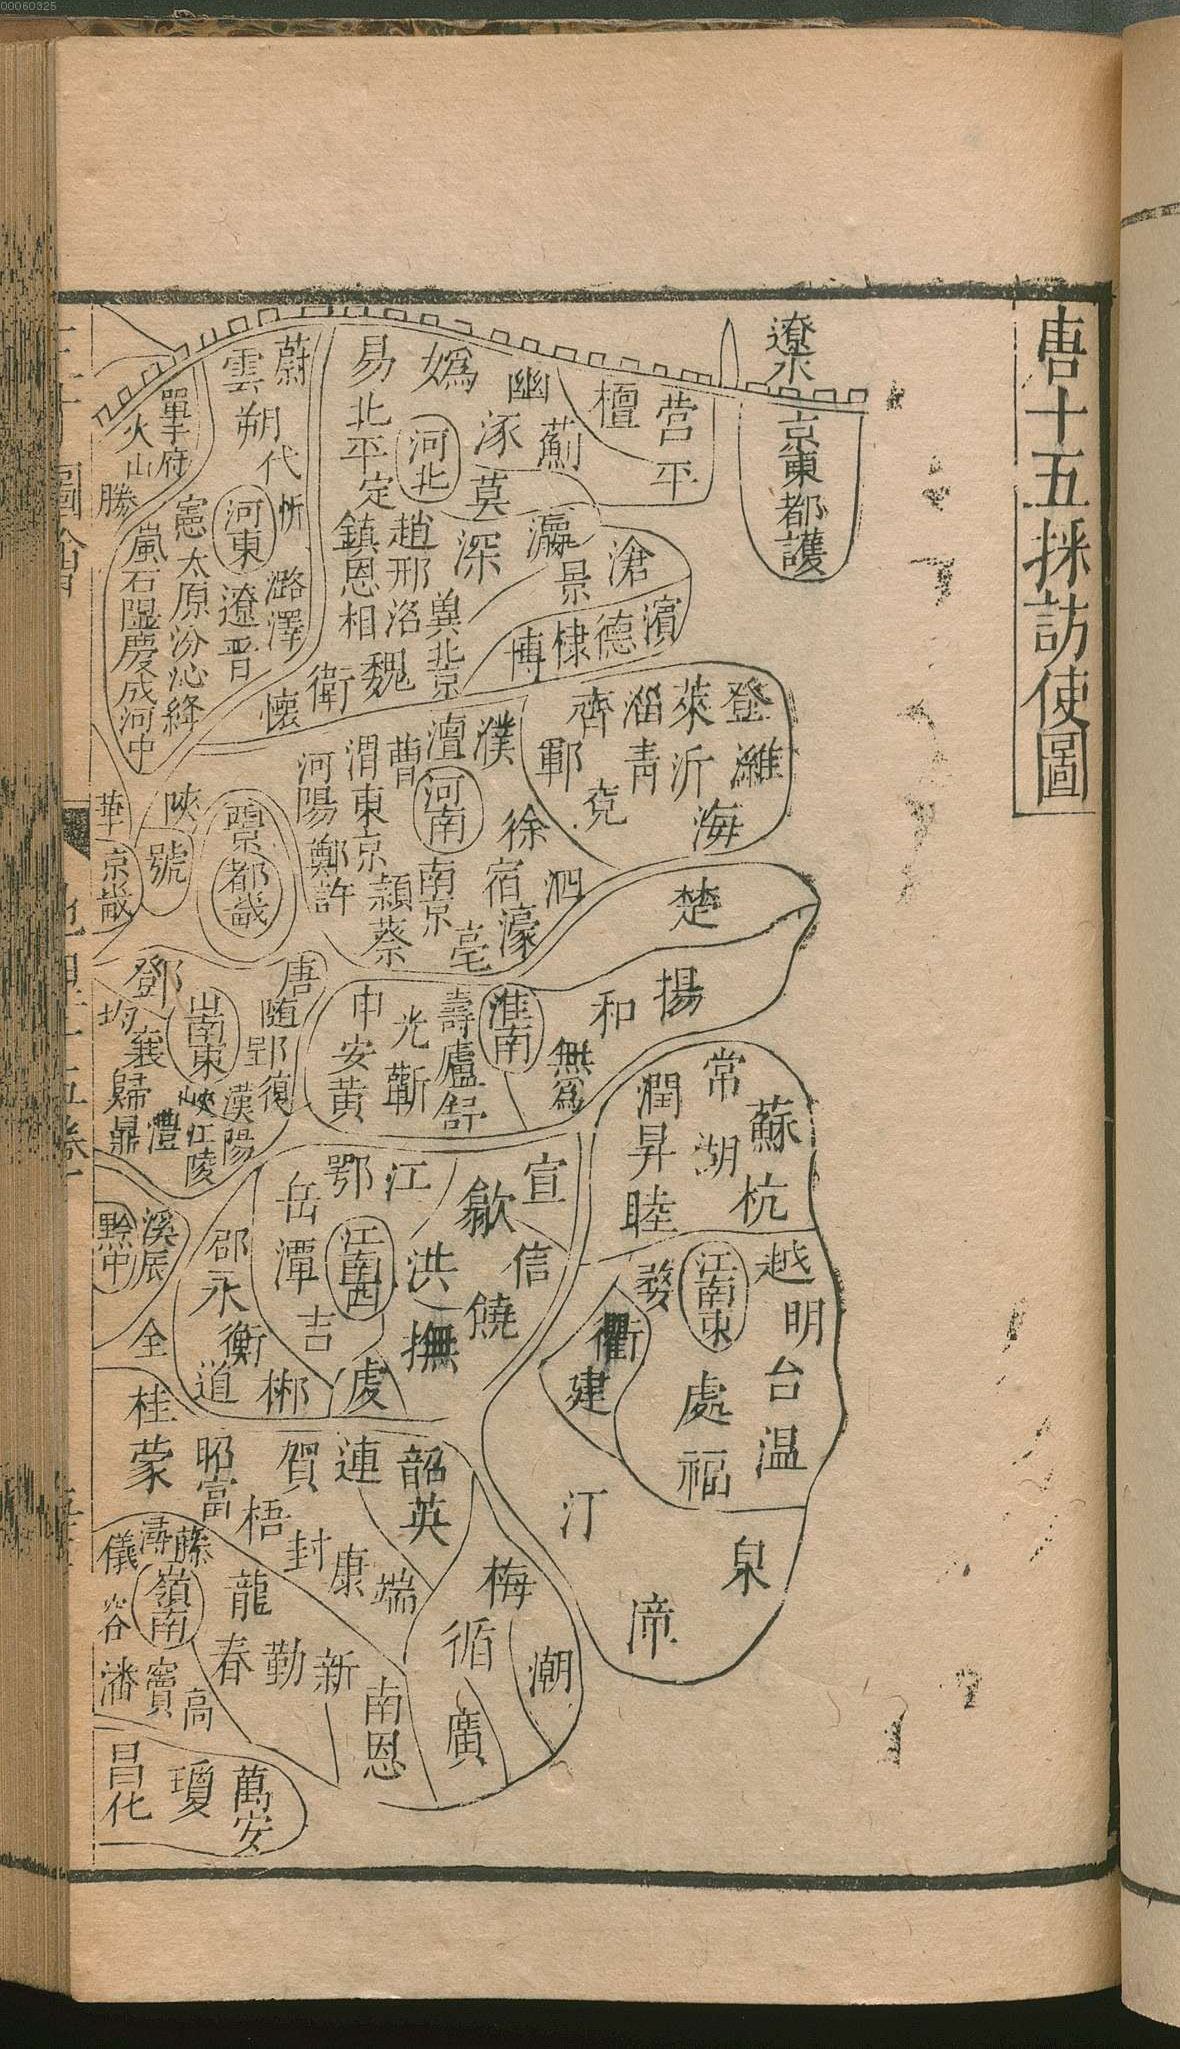 00060325
唐十五採訪使圖
遼水
京東都護
營平
檀
幽
薊
媯
涿
易
北平
定
河北
莫
瀛
景
滄
深
趙
邢
洺
鎮
恩
相
冀
北京
魏
衛
懷
博
棣
德
濱
蔚
雲
朔
代
忻
單于府
火山
勝
河東
憲
太原
汾
沁
絳
嵐
石
隰
慶成
河中
遼
晉
潞
澤
登
萊
淄
齊
濰
沂
青
鄆
兗
海
濮
澶
曹
渭
河陽
河南
東京
鄭
許
徐
宿
泗
南京
潁
蔡
亳
濠
陝
虢
京都畿
華
京畿
楚
揚
和
無為
淮南
壽
廬
舒
光
蘄
申
安
黄
唐
随
郢
復
漢陽
鄧
均
襄
山南東
歸
峽
江陵
鼎
澧
常
潤
蘇
昇
湖
杭
睦
越
明
台
温
江南東
婺
衢
建
處
福
汀
泉
漳
宣
歙
信
饒
江
鄂
岳
洪
撫
江南西
潭
吉
虔
邵
永
衡
道
郴
溪
辰
黔中
全
桂
蒙
昭
富
賀
連
韶
英
梧
封
康
端
梅
循
潮
廣
龍
春
勤
新
南恩
潯
藤
儀
嶺南
容
潘
竇
高
昌化
瓊
萬安